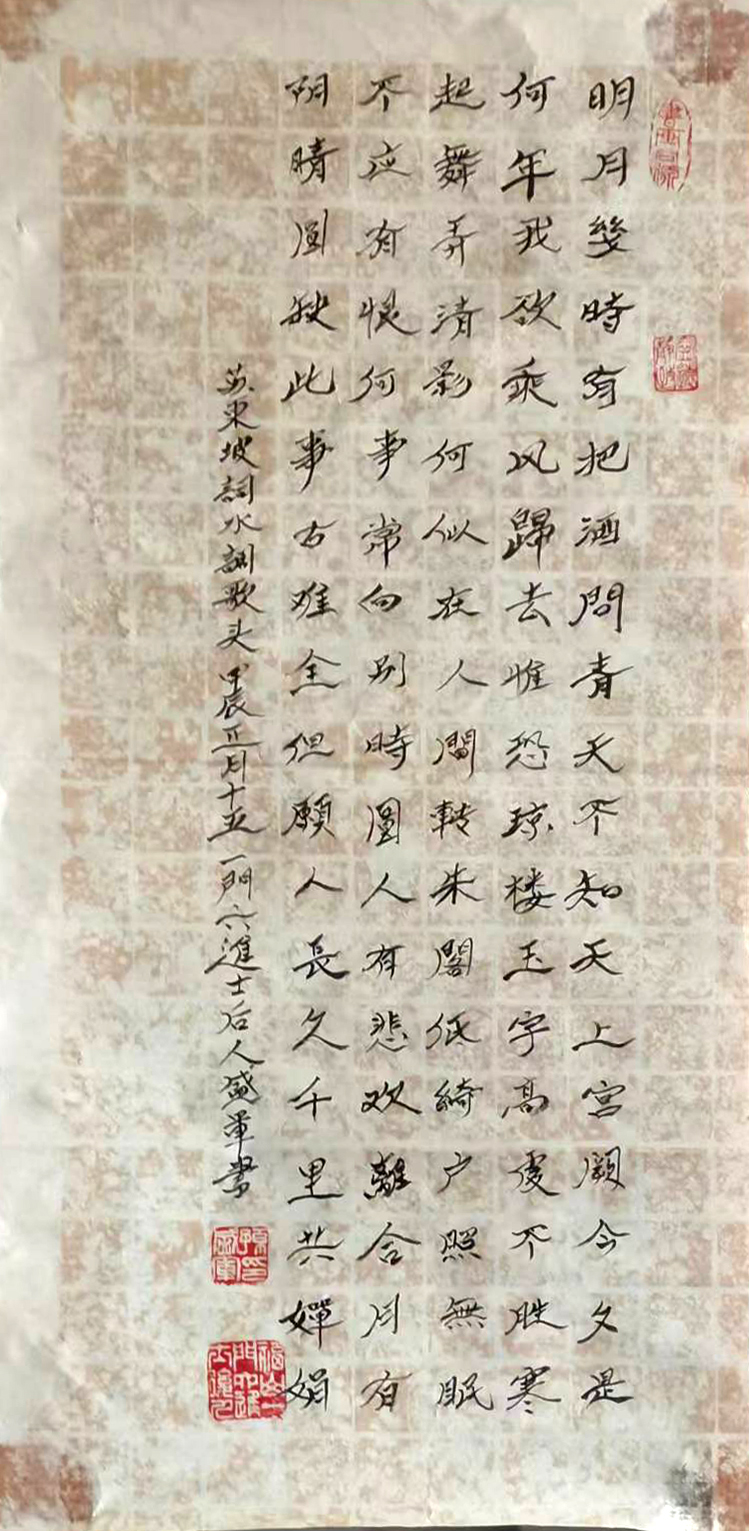 明月幾時有把酒問青天不知天上宮闕今夕是
何年我欲乘风歸去惟恐琼楼玉宇高處不胜寒
起舞弄清影何似在人間轉朱閣低綺户照無眠
不应有恨何事常向别時圓人有悲欢離合月有
阴晴圓缺此事古难全但願人長久千里共嬋娟
苏东坡詞水調歌头 甲辰正月十五 一門六進士后人盛軍書